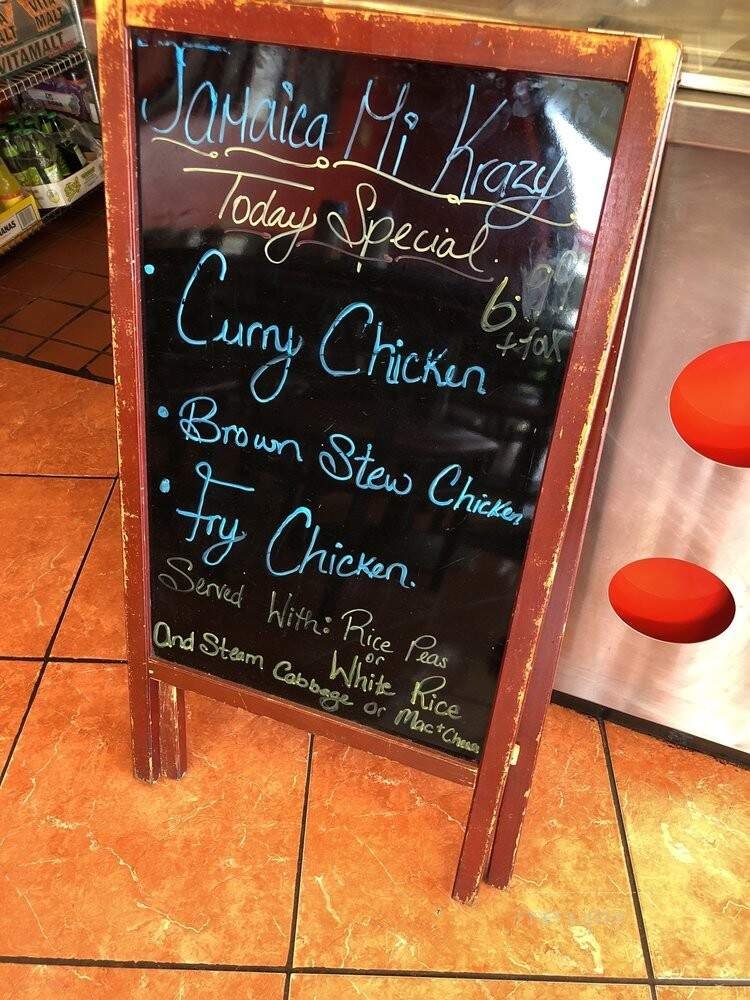 VITA
MALT
VITAMALT
Jamaica Mi Krazy
Today Special.
6.99
+ tax
• Curry Chicken
• Brown Stew Chicken
• Fry Chicken.
Served With: Rice Peas
or
White Rice
And Steam Cabbage or Mac + Cheese